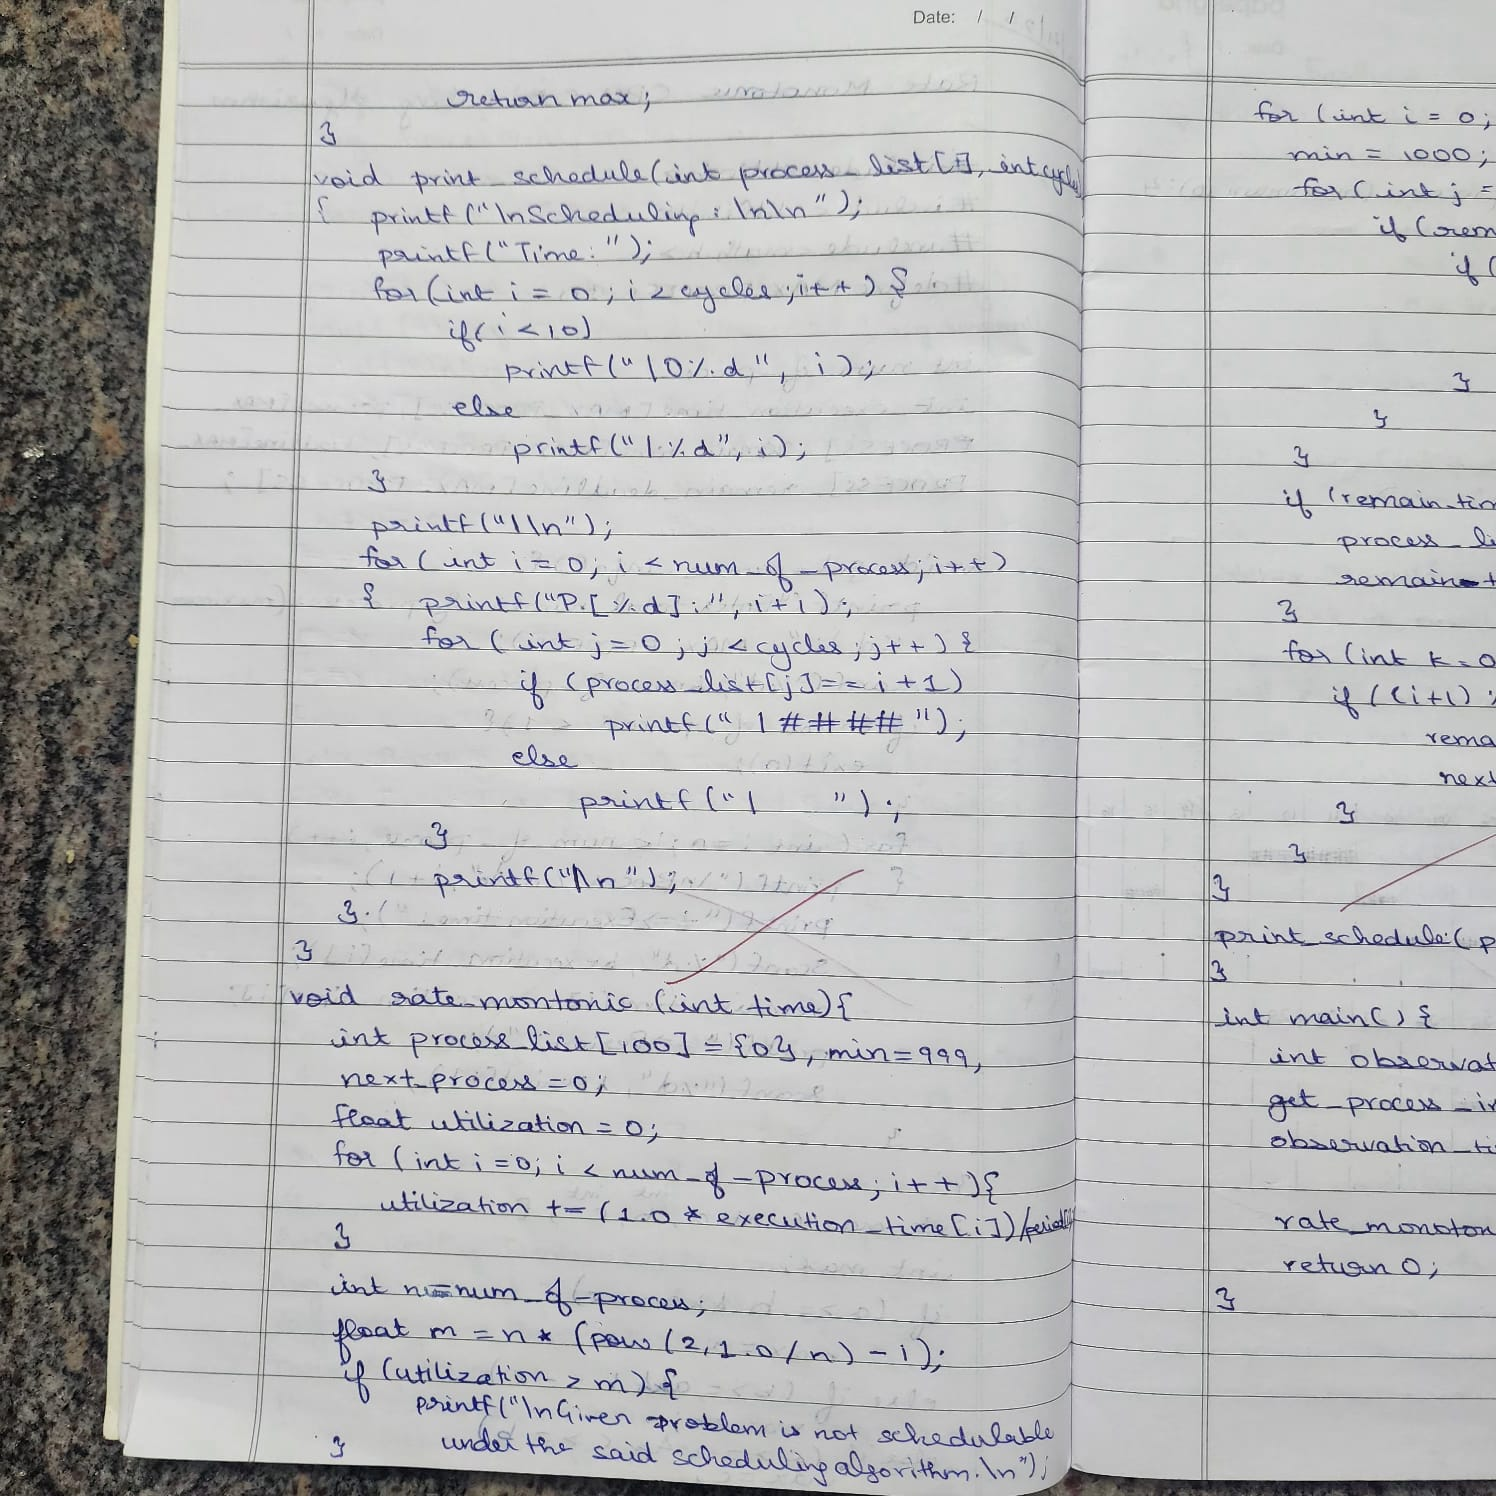 Date: / /
return max;
}
void print_schedule(int process_list[], int cycles
{ printf("\nScheduling: \n\n");
printf("Time: ");
for(int i = 0; i < cycles; i++) {
if(i < 10)
printf("|0%d", i);
else
printf("|%d", i);
}
printf("|\n");
for (int i = 0; i < num_of_process; i++)
{ printf("P.[%d]:", i+i);
for (int j = 0; j < cycles; j++) {
if (process_list[j] == i+1)
printf("|####");
else
printf("|    ");
}
printf("|\n");
}.
}
void rate_montonic (int time){
int process_list[100] = {0}, min=999,
next_process = 0;
float utilization = 0;
for (int i=0; i < num_of_process; i++){
utilization += (1.0 * execution_time[i])/period[i]
}
int n=num_of_process;
float m = n* (pow(2,1.0/n) - 1);
if (utilization > m) {
printf("\nGiven problem is not schedulable
under the said scheduling algorithm.\n");
}
for (int i = 0;
min = 1000;
for (int j =
if (rem
if (
}
}
}
if (remain_tim
process_li
remain_t
}
for (int k = 0
if ((i+1)
rema
next
}
}
}
print_schedule(p
}
int main() {
int observat
get_process_in
observation_ti
rate_monoton
return 0;
}